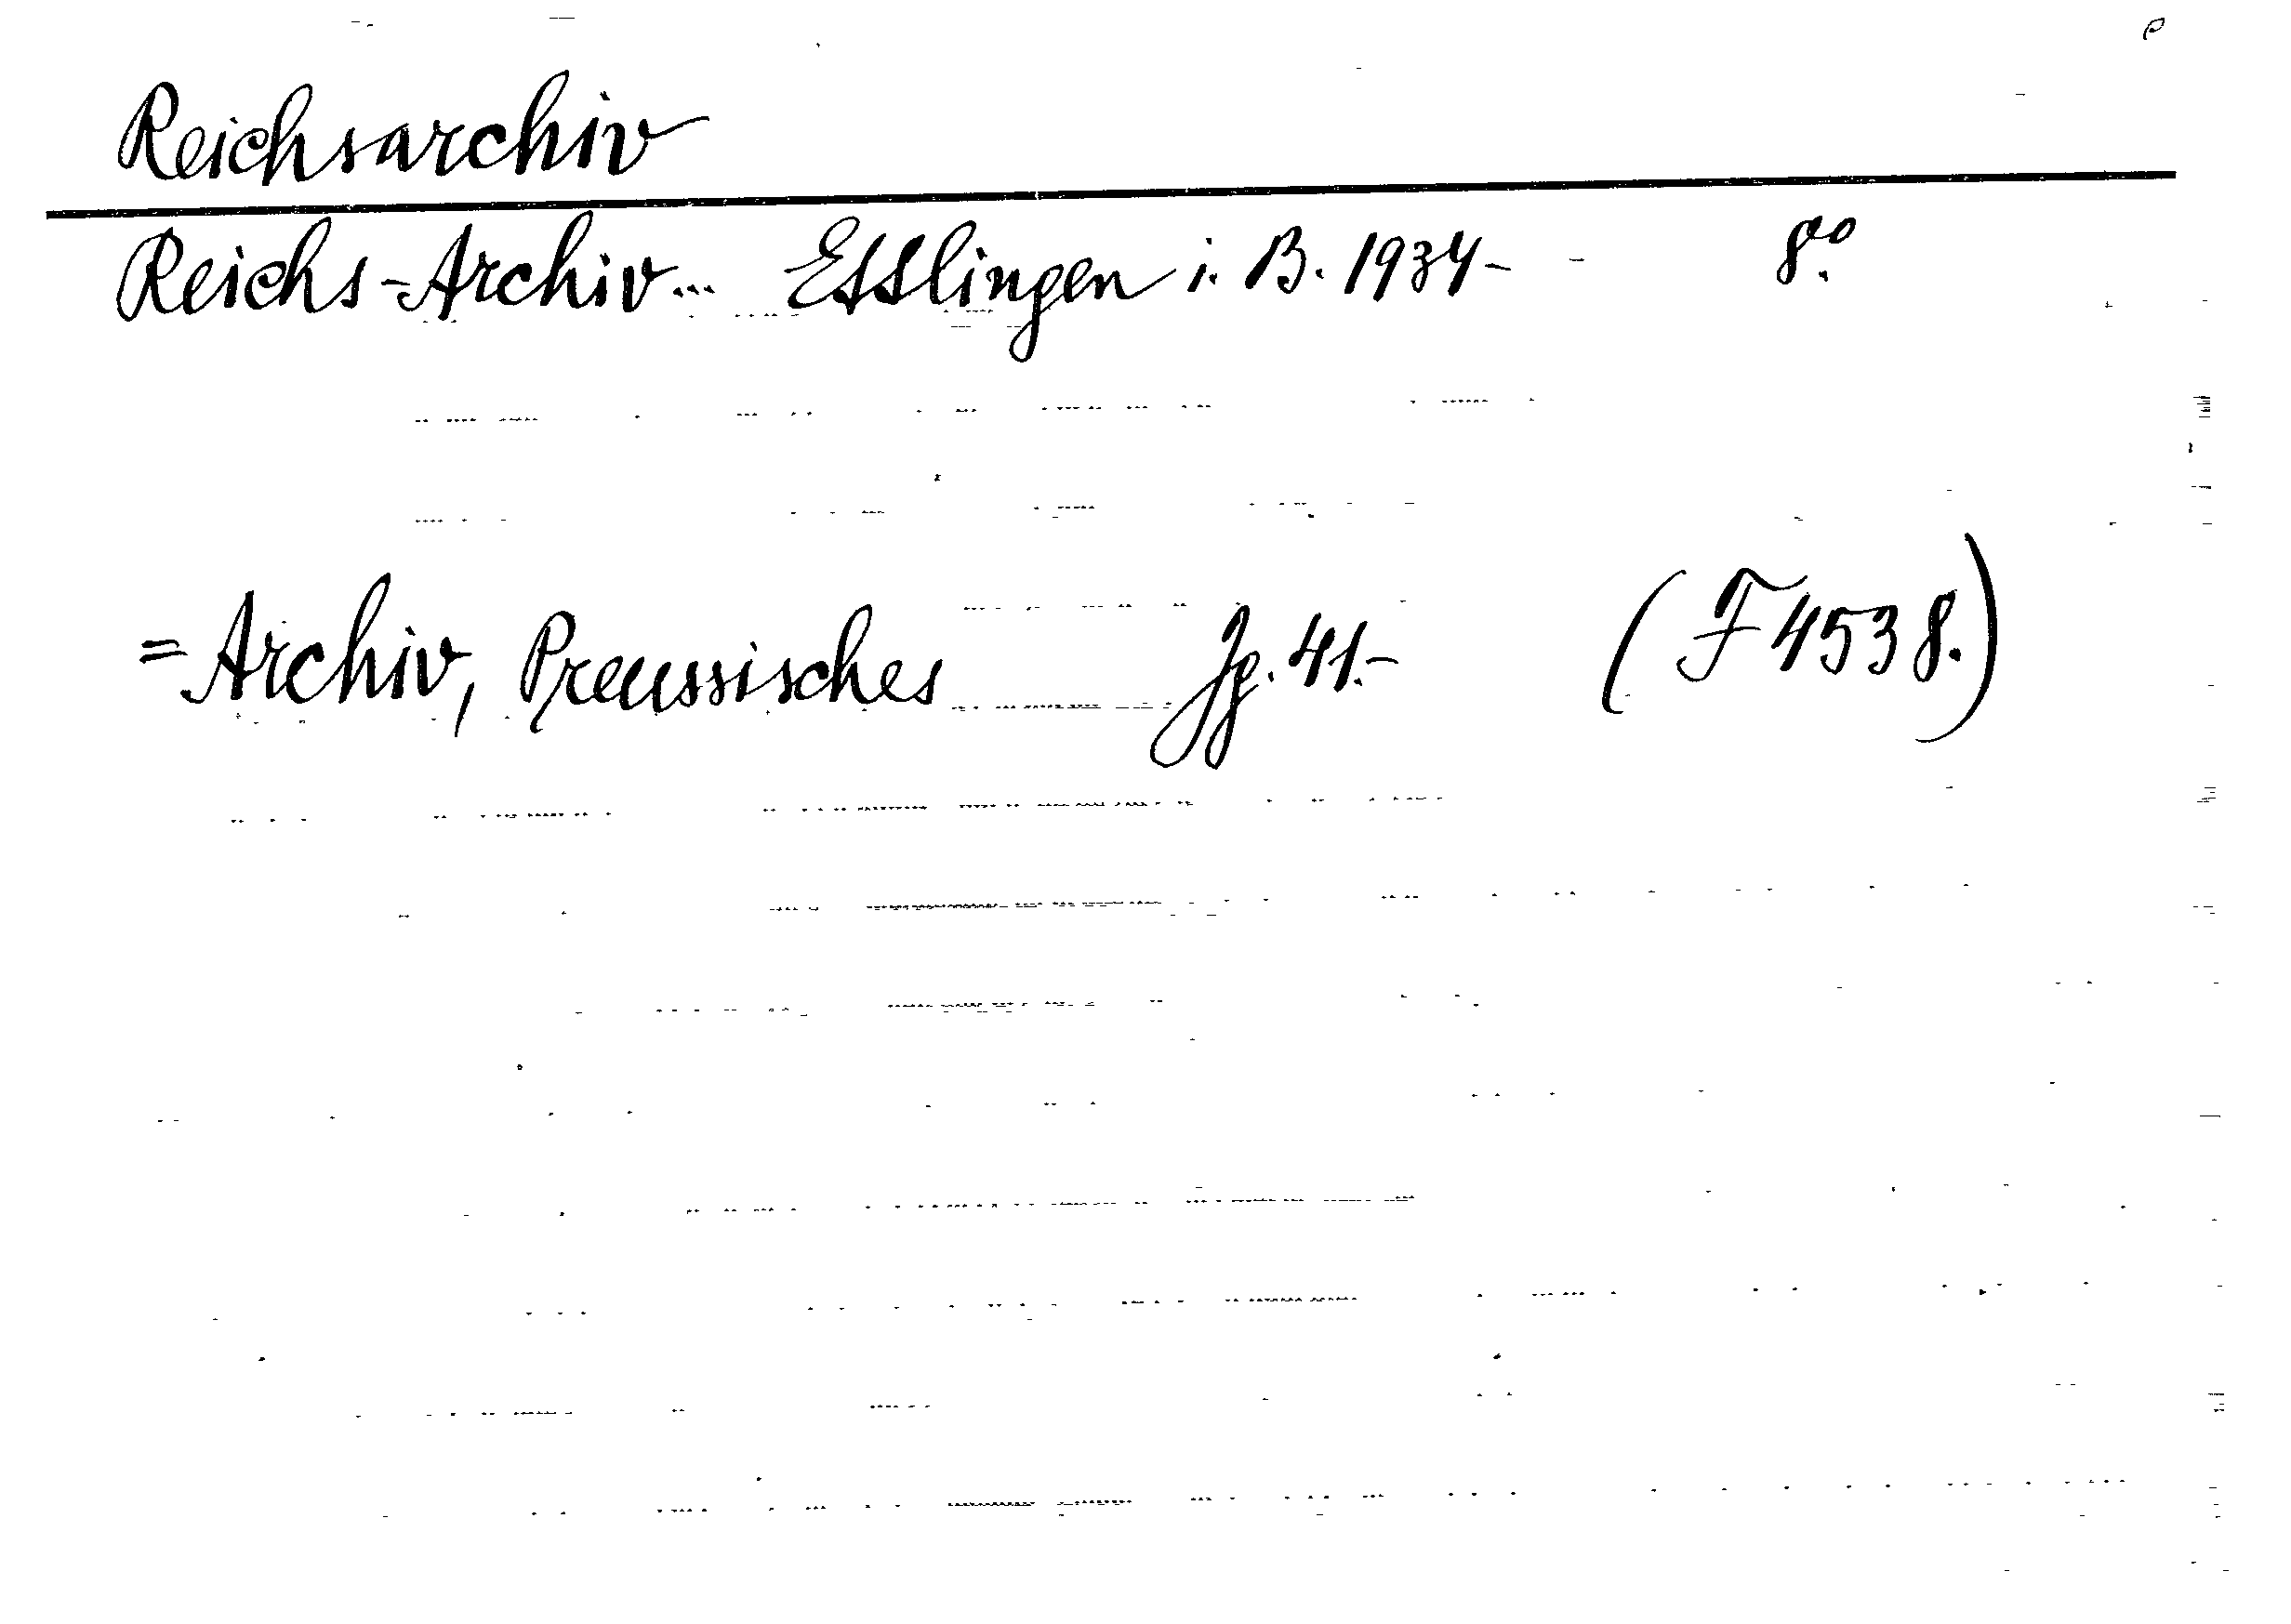 Reichsarchiv
Reichs-Archiv... Esslingen i. B. 1934- - 8º.
= Archiv, Preussisches Jg. 41.- (F 4538.)